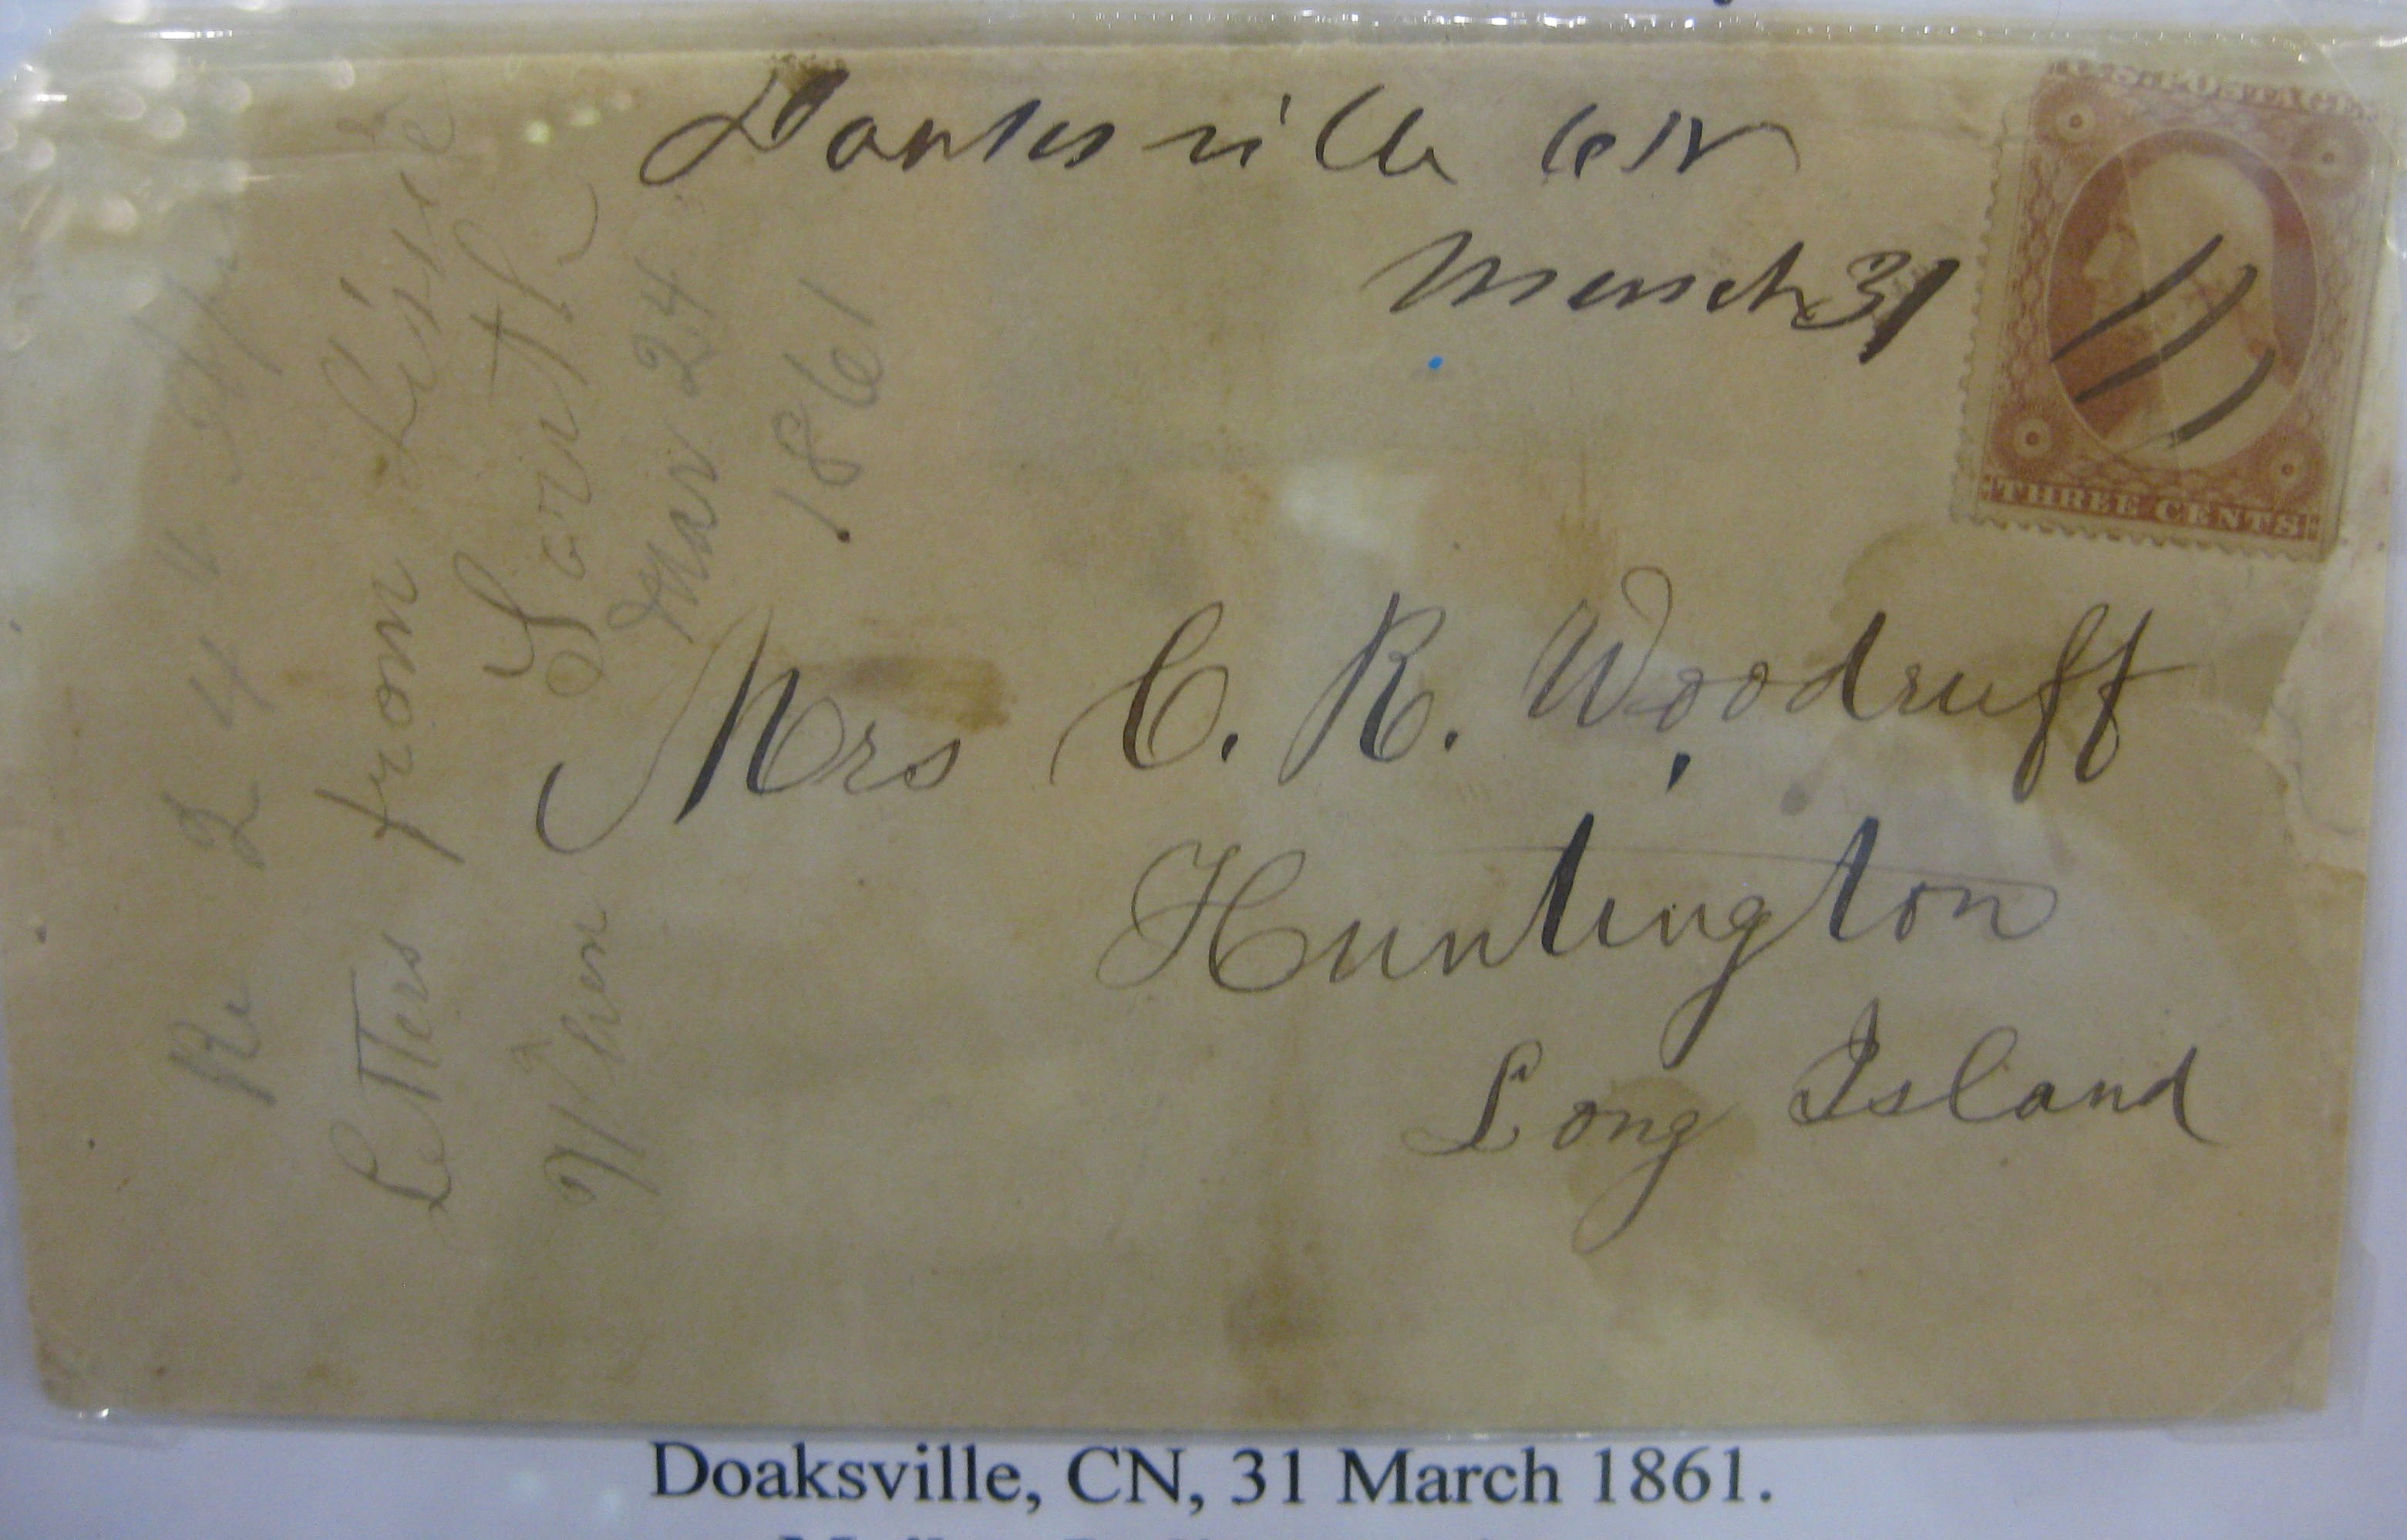 Doaksville CN
March 31
U.S. POSTAGE
THREE CENTS
Mrs C. R. Woodruff
Huntington
Long Island
Letters from Lissie
North
Mar 24
1861
Doaksville, CN, 31 March 1861.